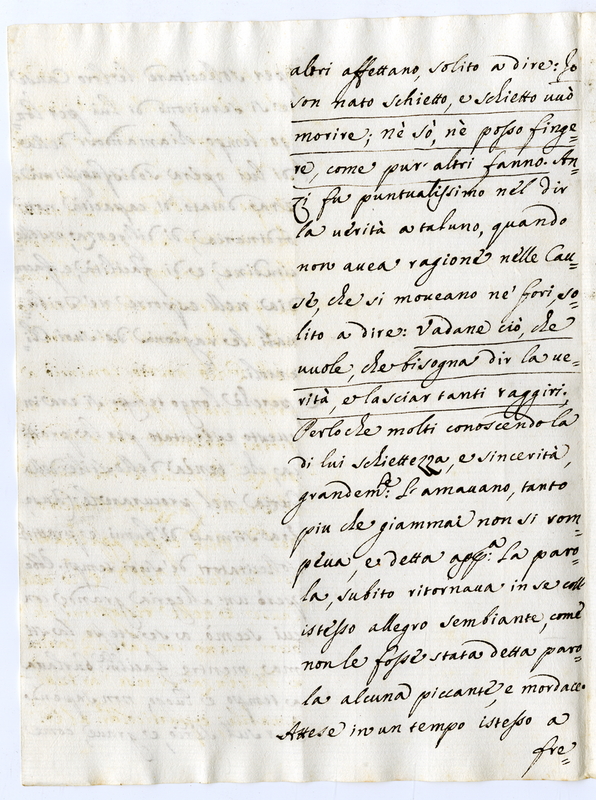 altri affettano, solito a dire: Io
son nato schietto, e schietto vuò
morire; nè sò, nè posso finge=
re, come pur altri fanno. An=
zi fu puntualissimo nel dir
la verità a taluno, quando
non avea ragione nelle Cau=
se, che si moveano ne' fori, so=
lito a dire: Vadane ciò, che
vuole, che bisogna dir la ve=
rità, e lasciar tanti raggiri.
Perloche molti conoscendo la
di lui schiettezza, e sincerità,
grandemte: l'amavano, tanto
piu che giammai non si rom=
peva, e detta
la paro=
la, subito ritornava in se coll'
istesso allegro sembiante, come
non le fosse stata detta paro=
la alcuna piccante, e mordace.
Attese in un tempo istesso a
fre=